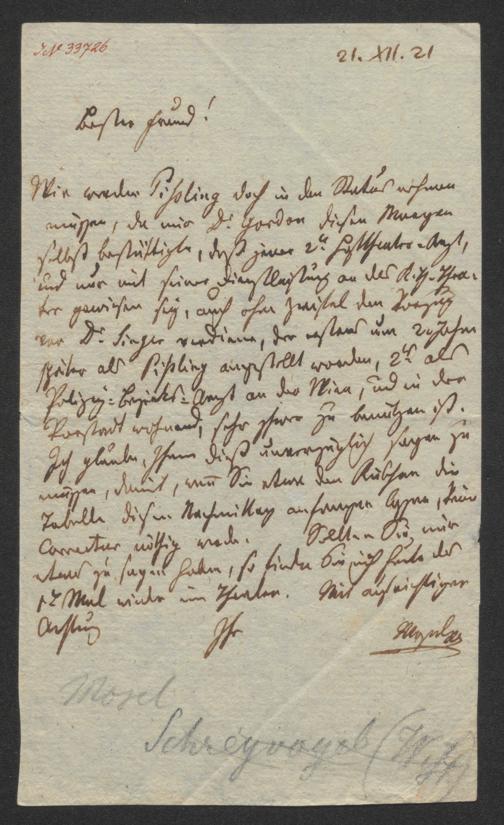 I.N. 33726
21. XII. 21
Bester Freund!
Wir werden Kißling doch in den Status nehmen
müssen, da mir Dr. Gordon diesen Morgen
selbst bestättigte, daß jener 2ter Hoftheater-Arzt,
und nur mit seiner Dienstleistung an das K. H. Thea-
ter gewiesen sey, auch ohne Zweifel den Vorzug
vor Dr. Singer verdiene, der erstens um 2 Jahre
später als Kißling angestellt worden, 2tens als
Polizey-Bezirks-Arzt an der Wien, und in der
Vorstadt wohnend, sehr schwer zu benützen ist.
Ich glaube, Ihnen dieß unverzüglich sagen zu
müssen, damit, wenn Sie etwa den die
Tabelle diesen Nachmittag anfangen lassen, keine
Correctur nöthig werde. Sollten Sie mir
etwas zu sagen haben, so finden Sie mich heute das
1te Mal wieder im Theater. Mit aufrichtiger
Achtung Ihr Mosel
Mosel
Schreyvogel (West)